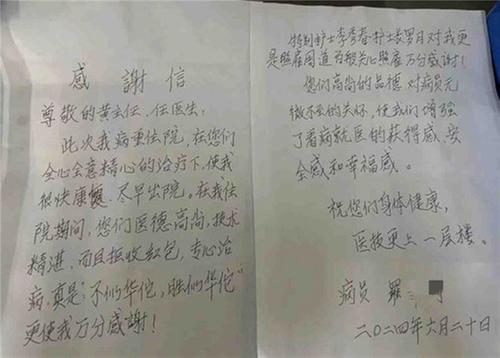 感謝信
尊敬的黄主任、任医生:
此次我病重住院,在您们
全心全意精心的治疗下,使我
很快康復、尽早出院。在我住
院期间,您们医德高尚,技术
精湛,而且拒收红包,专心治
病,真是“不似华佗,胜似华佗”
更使我万分感谢!
特别护士李秀春、护士长罗月对我更
是照雇周道百般关心照雇万分感谢!
您们高尚的品德对病员无
微不至的关怀,使我们增强
了看病就医的获得感、安
全感和幸福感。
祝您们身体健康,
医技更上一层楼。
病员 羅
二〇二四年六月二十日